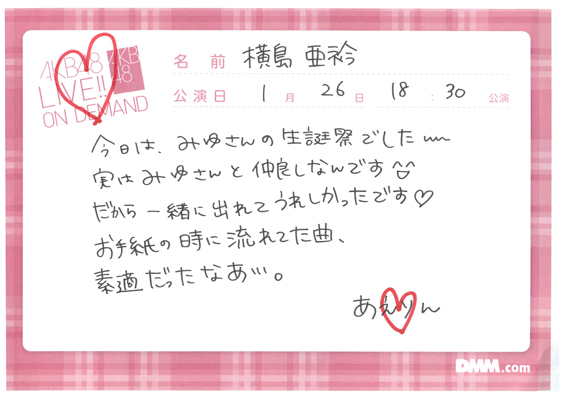 AKB48
LIVE!!
ON DEMAND
AKB
48
名前 横島亜衿
公演日 1月26日 18:30公演
今日は、みゆさんの生誕祭でした〰
実はみゆさんと仲良しなんです
だから一緒に出れてうれしかったです♡
お手紙の時に流れてた曲、
素適だったなあ…。
あえりん
DMM.com